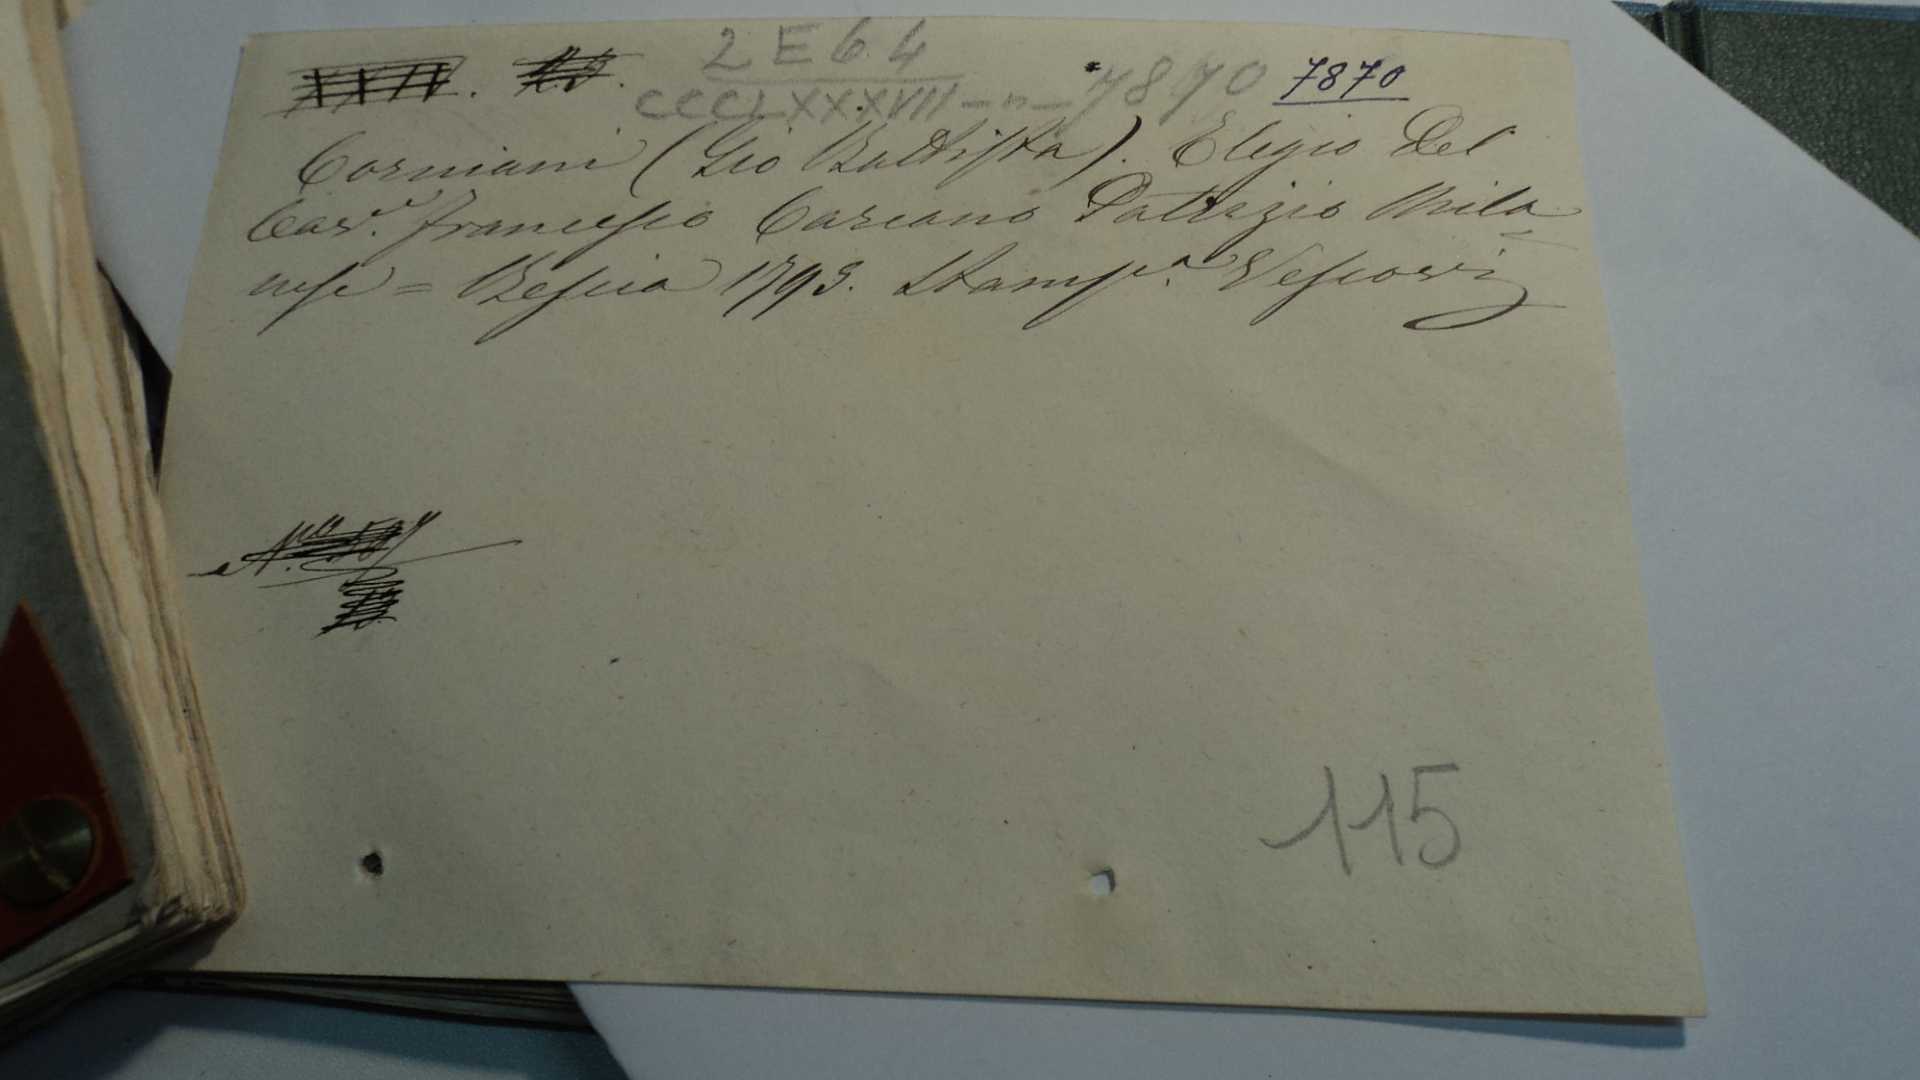 2 E 6 4
CCCLXXXVII - n - 7870 7870
Corniani (Gio Battista). Elogio Del
Cav.e Francesco Carcano Patrizio Mila
nese = Brescia 1795. Stamp.a Vescovi
115